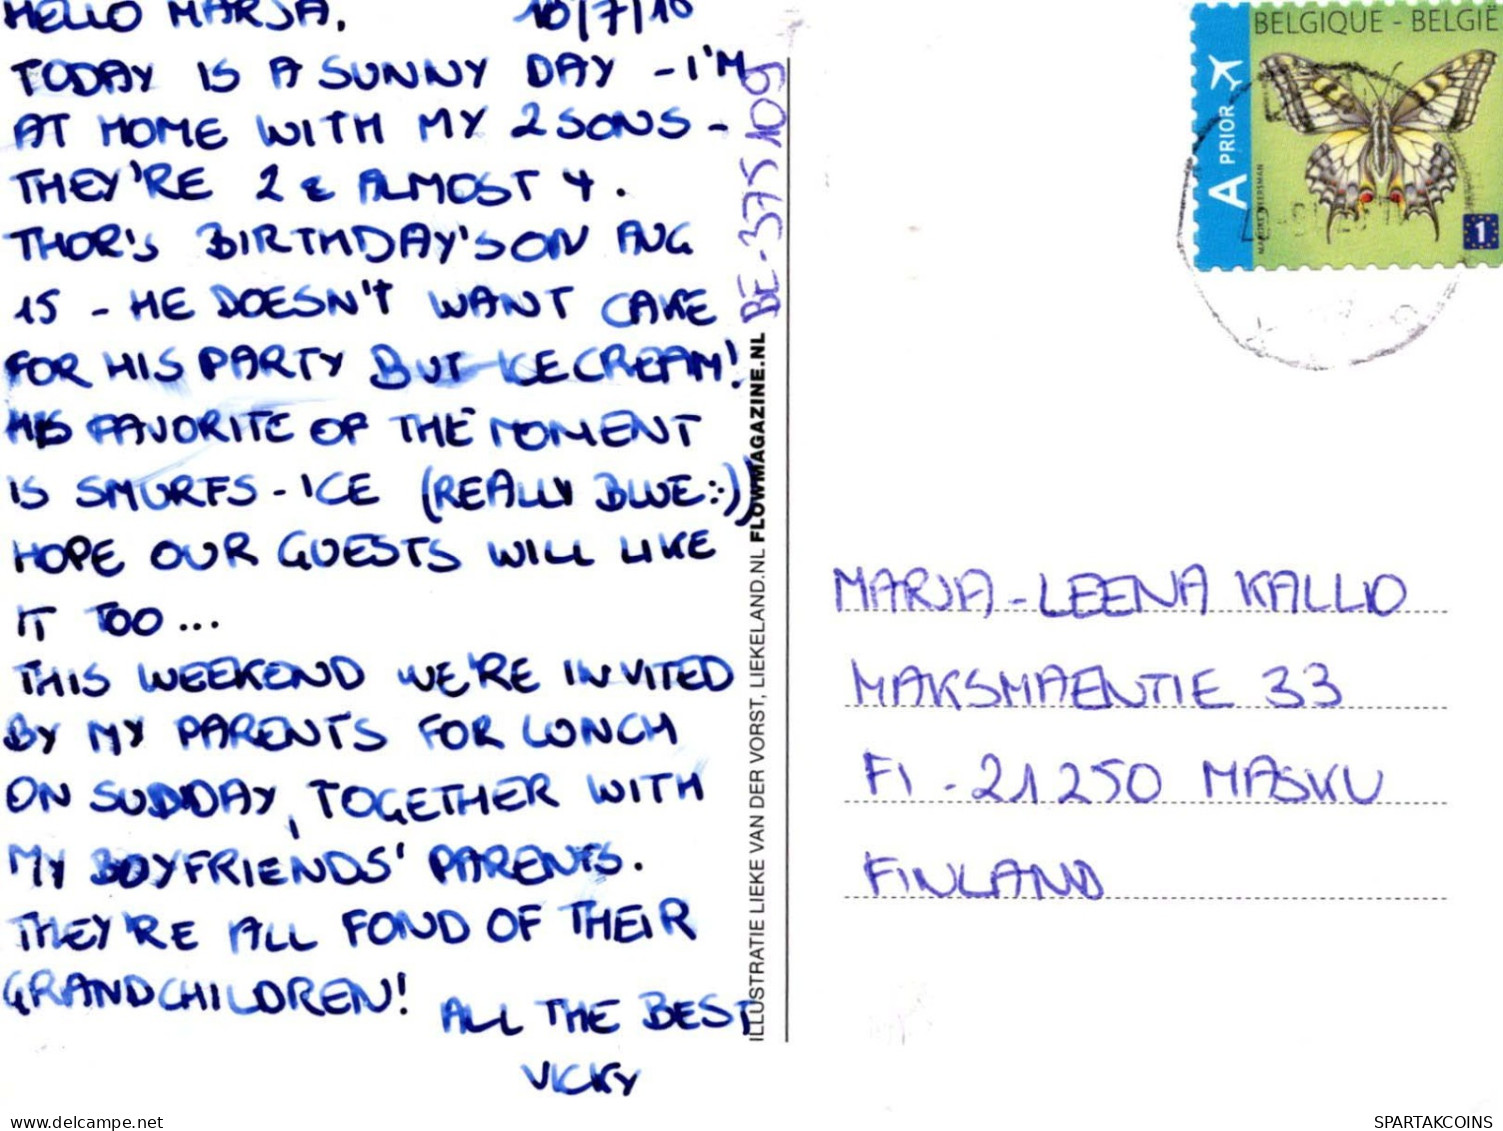 HELLO MARJA, 10/7/10
TODAY IS A SUNNY DAY - I'M
AT HOME WITH MY 2 SONS -
THEY'RE 2 & ALMOST 4.
THOR'S BIRTHDAY'S ON AUG
15 - HE DOESN'T WANT CAKE
FOR HIS PARTY BUT ICECREAM!
HIS FAVORITE OF THE MOMENT
IS SMURFS-ICE (REALLY BLUE:))
HOPE OUR GUESTS WILL LIKE
IT TOO...
THIS WEEKEND WE'RE INVITED
BY MY PARENTS FOR LUNCH
ON SUNDAY, TOGETHER WITH
MY BOYFRIENDS' PARENTS.
THEY'RE ALL FOND OF THEIR
GRANDCHILDREN!
ALL THE BEST
VICKY
BE-375109
ILLUSTRATIE LIEKE VAN DER VORST, LIEKELAND.NL FLOWMAGAZINE.NL
BELGIQUE - BELGIË
A PRIOR
1
MARJA-LEENA KALLIO
MAKSMAENTIE 33
FI-21250 MASKU
FINLAND
delcampe.net
SPARTAKCOINS